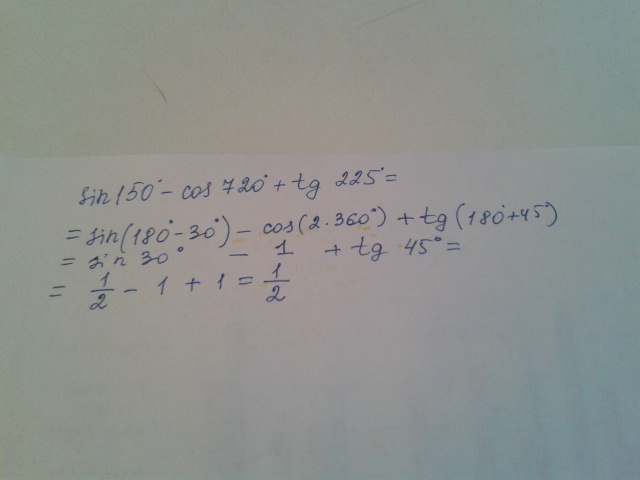 sin150°-cos 720°+tg 225°=
=sin(180°-30°)-cos(2·360°)+tg(180°+45°)
=sin 30° - 1 +tg 45°=
= 1/2 - 1 + 1 = 1/2